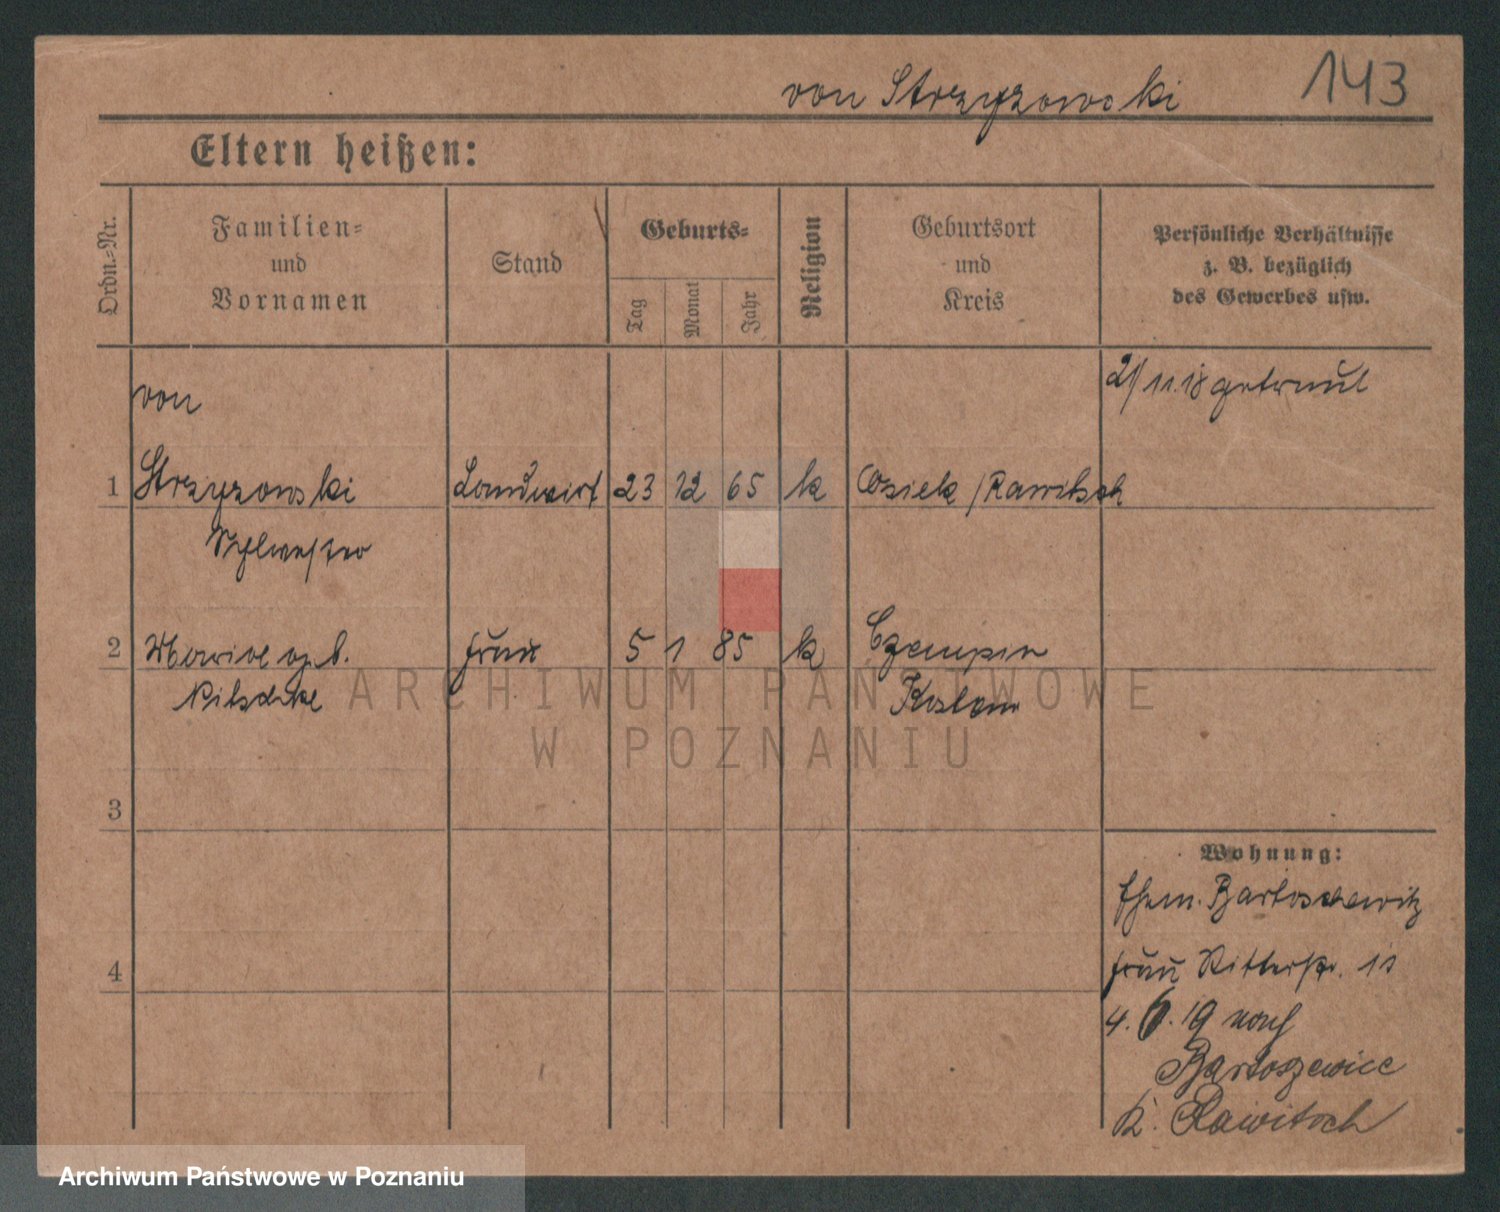 von Strzyzowski 143
Eltern heißen:
Ordn.-Nr.
Familien-
und
Vornamen
Stand
Geburts-
Tag
Monat
Jahr
Religion
Geburtsort
und
Kreis
Persönliche Verhältnisse
z. B. bezüglich
des Gewerbes usw.
von
2/11.18 getraut
1 Strzyzowski Landwirt 23 12 65 k Osiek / Rawitsch
Sylvester
2 Marie geb. Frau 5 1 85 k Czempin
Kosten
3
4
Wohnung:
Ehem. Bartoschewitz
Frau Ritterstr. 11
4. 6. 19 nach
Bartoszewice
K. Rawitsch
ARCHIWUM PAŃSTWOWE
W POZNANIU
Archiwum Państwowe w Poznaniu